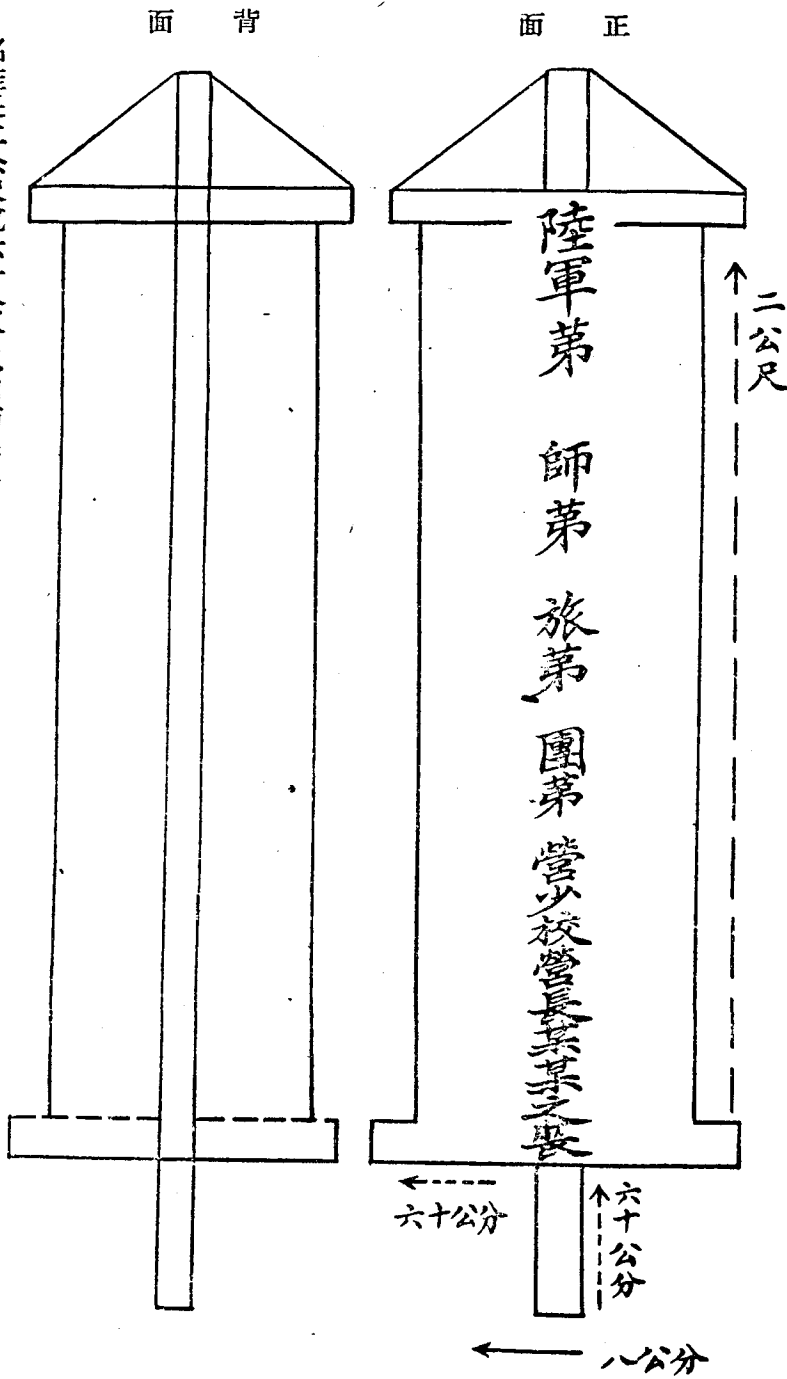 正面
陸軍第　師第　旅第　團第　營少校營長某某之喪
二公尺
六十公分
六十公分
八公分
背面